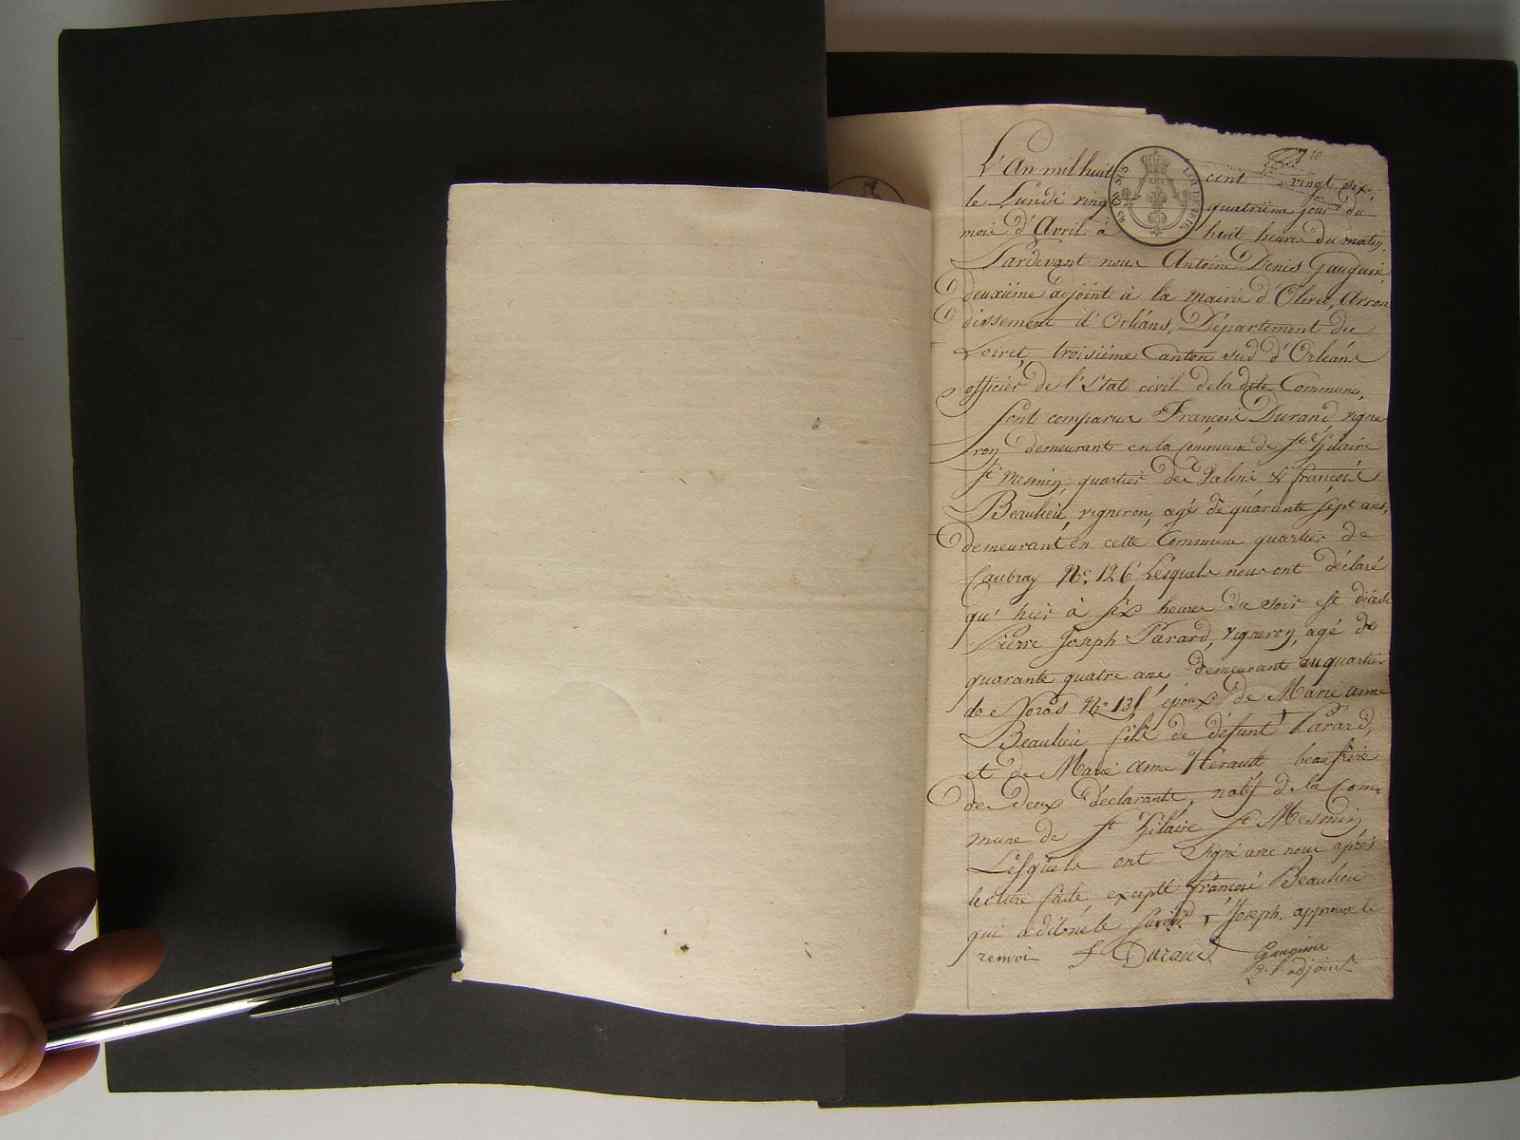 L'An mil huit cent vingt six,
le Lundi vingt quatrième jour du
mois d'Avril à huit heures du matin,
Pardevant nous Antoine Denis
deuxième adjoint à la mairie d'Olivet, Arron
dissement d'Orléans, Département du
Loiret, troisième Canton sud d'Orléans
officier de l'Etat civil de la dite Commune,
sont comparus François Durand vigne
ron demeurant en la Commune de St Hilaire
St Mesmin, quartier de & françois
Beaulieu, vigneron, agé de quarante sept ans,
demeurant en cette Commune quartier de
Caubray No. 126 Lesquels nous ont déclaré
qu'hier à six heures du soir est décédé
Pierre Joseph Parard, vigneron, agé de
quarante quatre ans demeurant au quartier
de No. époux de Marie anne
Beaulieu fils de défunt Parard,
et de Marie anne Herault beau frère
de deux déclarants, natif de la Com
mune de St Hilaire St Mesmin
Lesquels ont signé avec nous après
lecture faite, excepté françois Beaulieu
qui a déclaré ne le savoir. Joseph approuvé le
renvoi
f Durand
adjoint